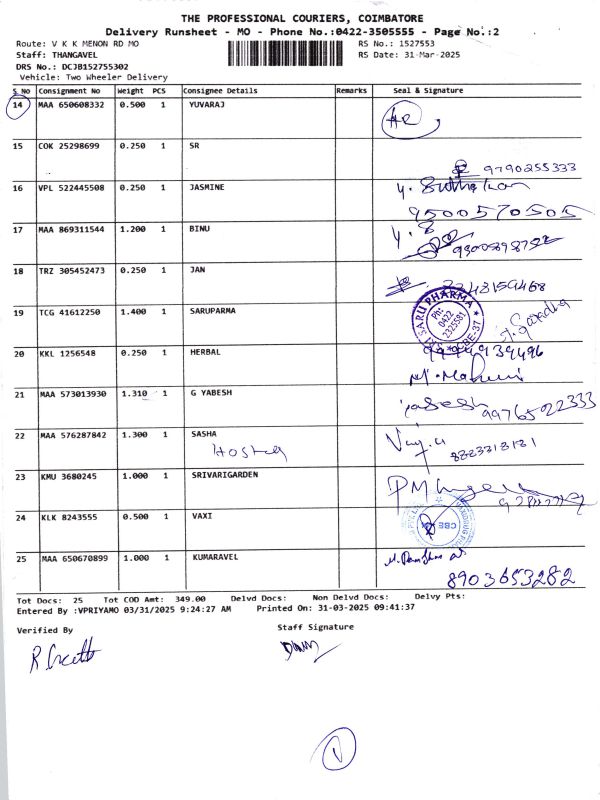 THE PROFESSIONAL COURIERS, COIMBATORE
Delivery Runsheet - MO - Phone No.:0422-3505555 - Page No.:2
Route: V K K MENON RD MO RS No.: 1527553
Staff: THANGAVEL RS Date: 31-Mar-2025
DRS No.: DCJB152755302
Vehicle: Two Wheeler Delivery
S No Consignment No Weight PCS Consignee Details Remarks Seal & Signature
14 MAA 650608332 0.500 1 YUVARAJ
15 COK 25298699 0.250 1 SR
9790255333
16 VPL 522445508 0.250 1 JASMINE
9500570505
17 MAA 869311544 1.200 1 BINU
18 TRZ 305452473 0.250 1 JAN
19 TCG 41612250 1.400 1 SARUPARMA
SARU PHARMA
Ph: 0422 2325581
CBE-37
20 KKL 1256548 0.250 1 HERBAL
21 MAA 573013930 1.310 1 G YABESH
9976522333
22 MAA 576287842 1.300 1 SASHA
Hostel
23 KMU 3680245 1.000 1 SRIVARIGARDEN
24 KLK 8243555 0.500 1 VAXI
CBE
25 MAA 650670899 1.000 1 KUMARAVEL
8903653282
Tot Docs: 25 Tot COD Amt: 349.00 Delvd Docs: Non Delvd Docs: Delvy Pts:
Entered By :VPRIYAMO 03/31/2025 9:24:27 AM Printed On: 31-03-2025 09:41:37
Verified By Staff Signature